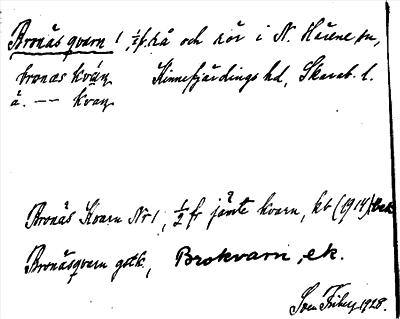 Bronäs qvarn 1, ½ f. rå och rör i N. Härene sn,
bronæs kván Kinnefjärdings hd, Skarab. l.
å. — — kvaɳ
Bronäs Kvarn Nr 1, ½ fr jämte kvarn, kb (1914)
Bronäsqvarn gstk., Brokvarn, ek.
Sven Friberg 1928.